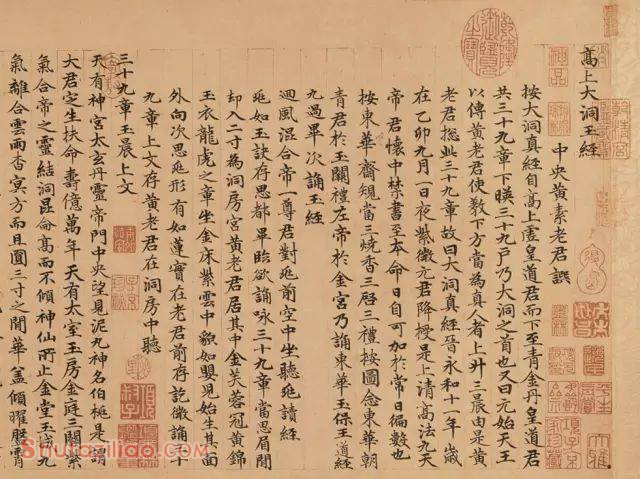 高上大洞玉經
中央黃素老君譔
按大洞真經自高上虛皇道君而下至青金丹皇道君
共三十九章下暎三十九戶乃大洞之首也又曰元始天王
以傳黃老君使教下方當為真人者上升三晨由是黃
老君揔此三十九章故曰大洞真經晉永和十一年歲
在乙卯九月一日夜紫微元君降授是上清高法九天
帝君懷中禁書至本命日自可加於常日徧數也
按東華齋規當三燒香三啓三禮按圖念東華朝
青君於玉闕禮左帝於金宮乃誦東華玉保王道經
九過畢次誦玉經
迴風混合帝一尊君對𠩄前空中坐聽𠩄讀經
𠩄如玉訣存思都畢臨欲誦咏三十九章當思眉間
却入二寸為洞房宮黃老君居其中金芙蓉冠黃錦
玉衣龍虎之章坐金床紫雲中貌如嬰兒始生其面
外向次思𠩄形有如蓮實在老君前存訖微誦三十
九章上文存黃老君在洞房中聽
三十九章玉晨上文
天有神宮太玄丹靈帝門中央望見泥丸神名伯極是謂
大君定生扶命壽億萬年天有太室玉房金庭三關紫
氣合帝之靈結洞昆命高而不傾神仙所止金堂玉城九
氣離合雲雨杳冥方而且圓三寸之間華蓋傾曜
Shufaziliao.com